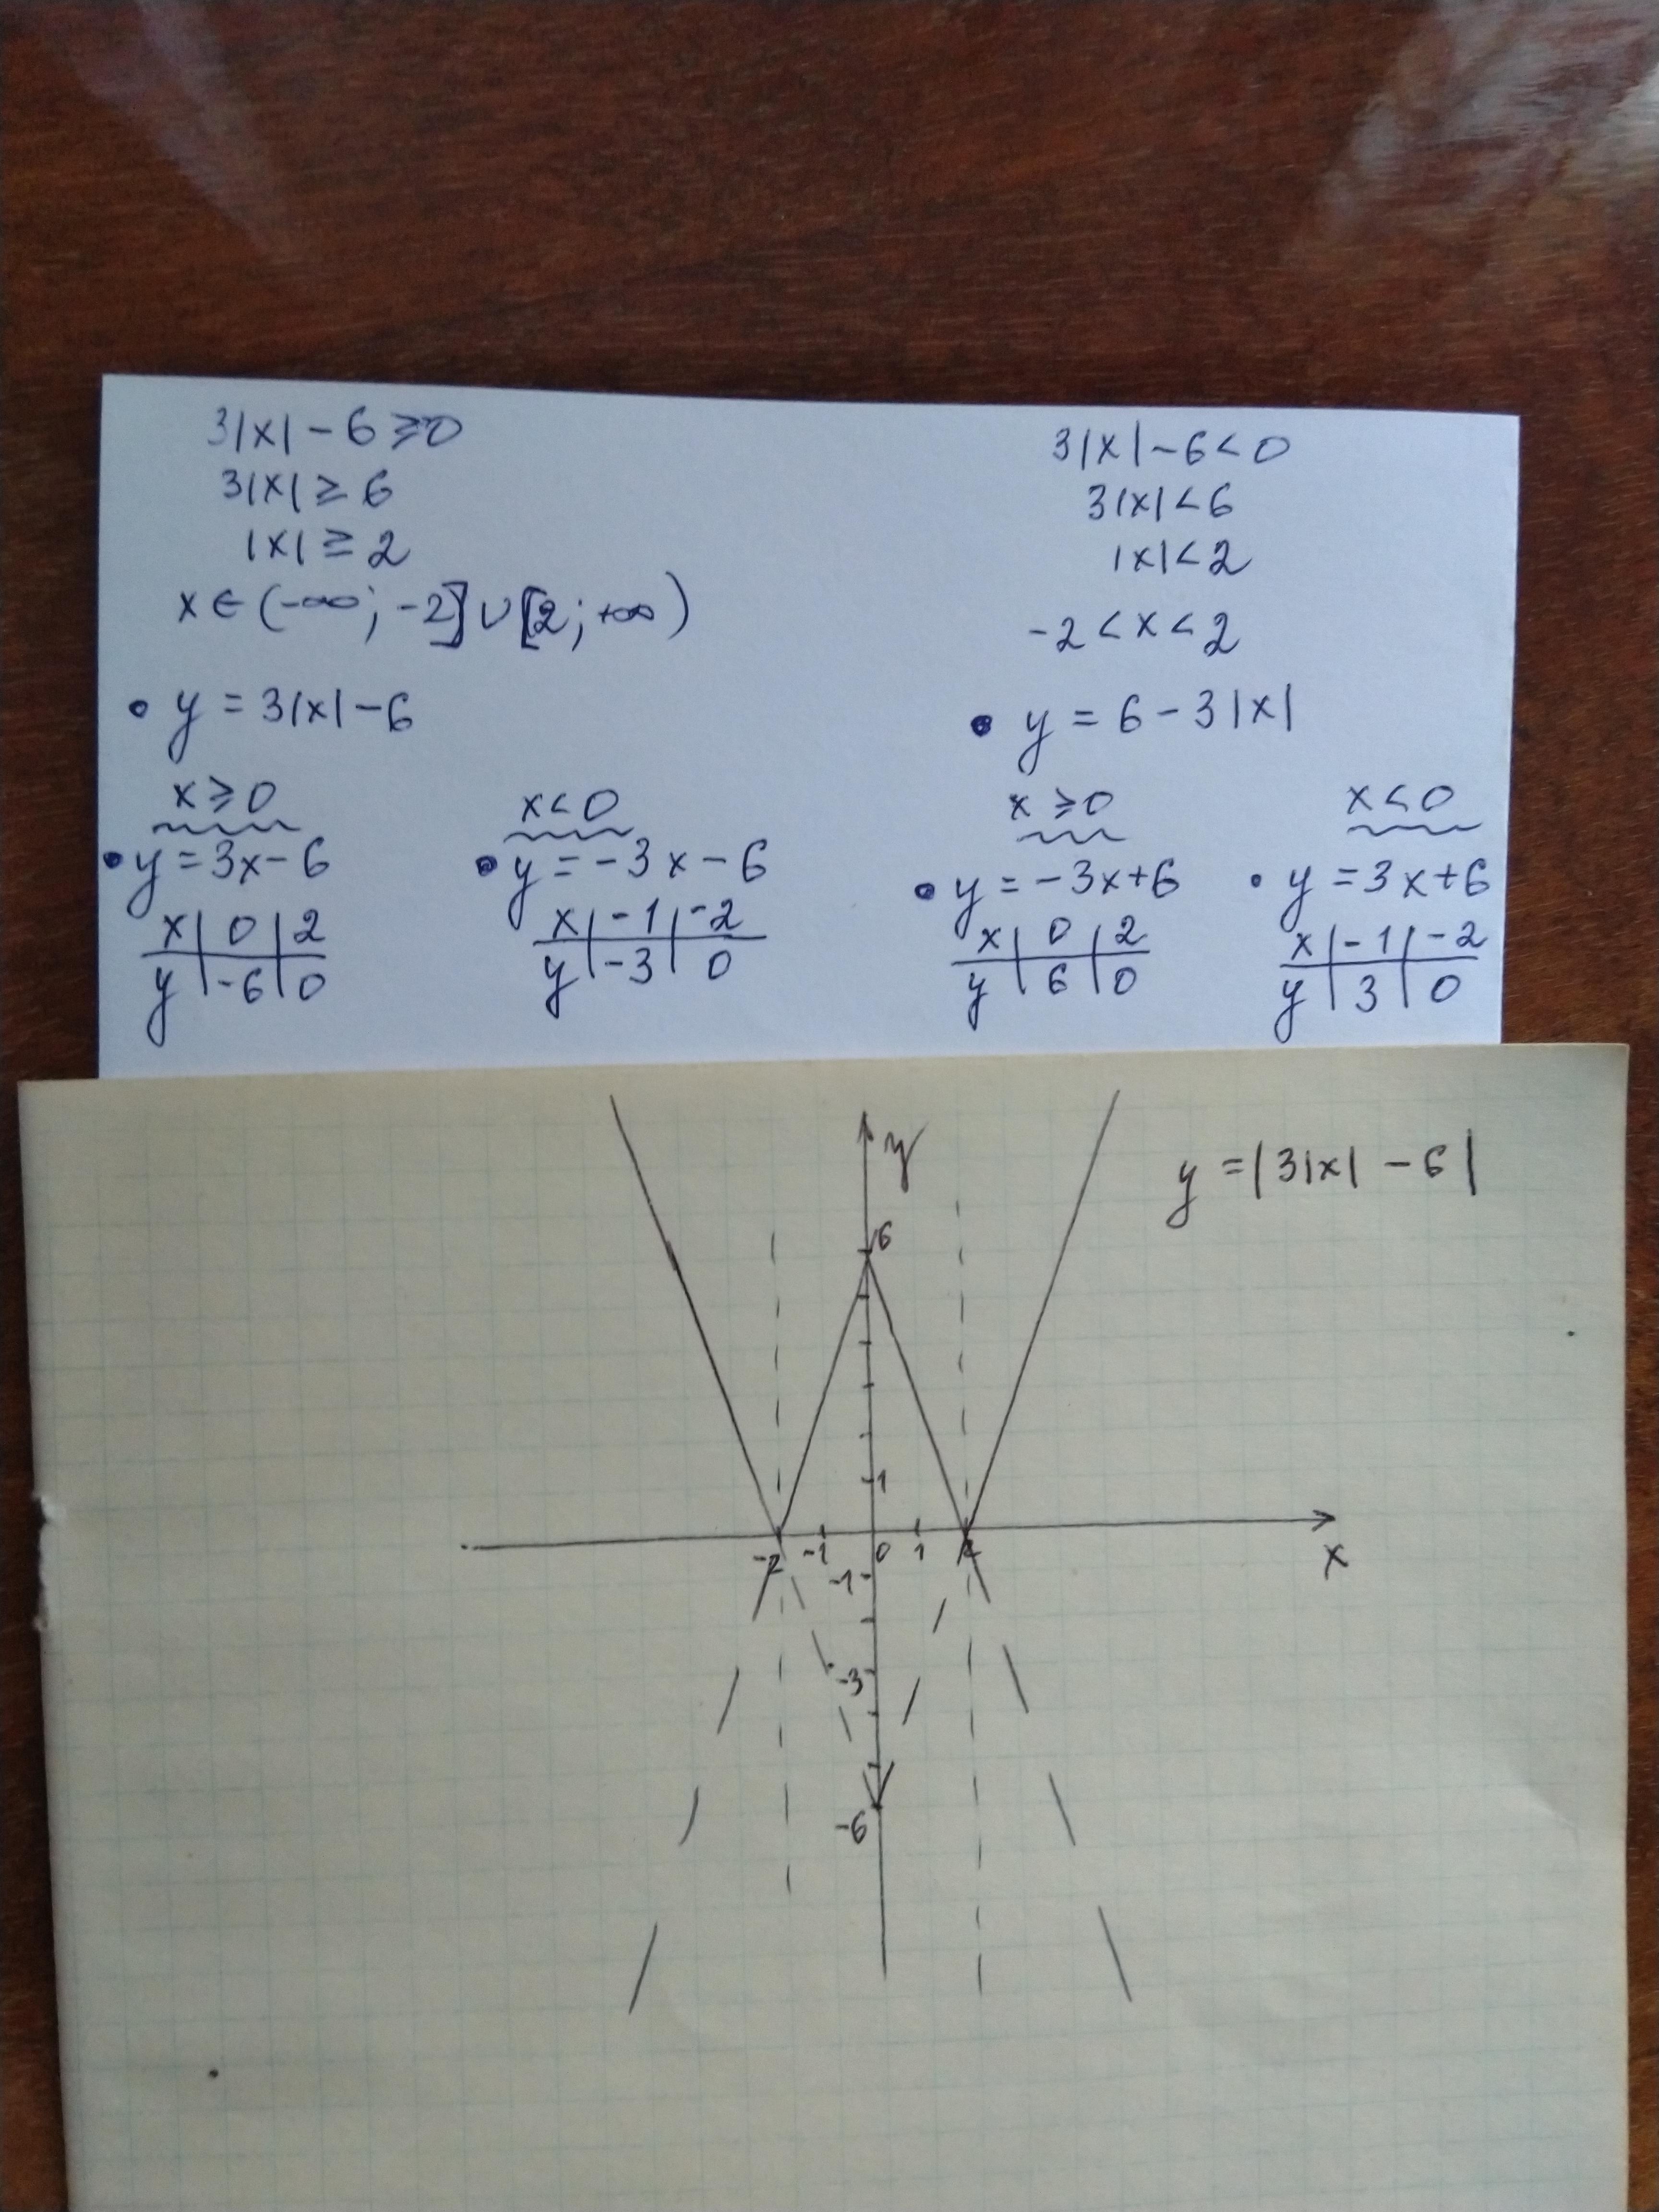 3|x| - 6 ≥ 0
3|x| ≥ 6
|x| ≥ 2
x ∈ (-∞; -2] ∪ [2; +∞)
• y = 3|x| - 6
x ≥ 0
• y = 3x - 6
x | 0 | 2
y | -6 | 0
x < 0
• y = -3x - 6
x | -1 | -2
y | -3 | 0
3|x| - 6 < 0
3|x| < 6
|x| < 2
-2 < x < 2
• y = 6 - 3|x|
x ≥ 0
• y = -3x + 6
x | 0 | 2
y | 6 | 0
x < 0
• y = 3x + 6
x | -1 | -2
y | 3 | 0
y
y = |3|x| - 6|
6
1
-2 -1 0 1 2
x
-1
-3
-6